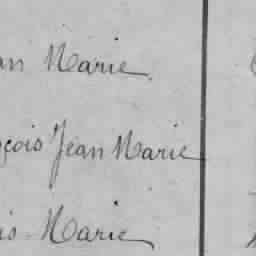 an Marie
çois Jean Marie
is Marie